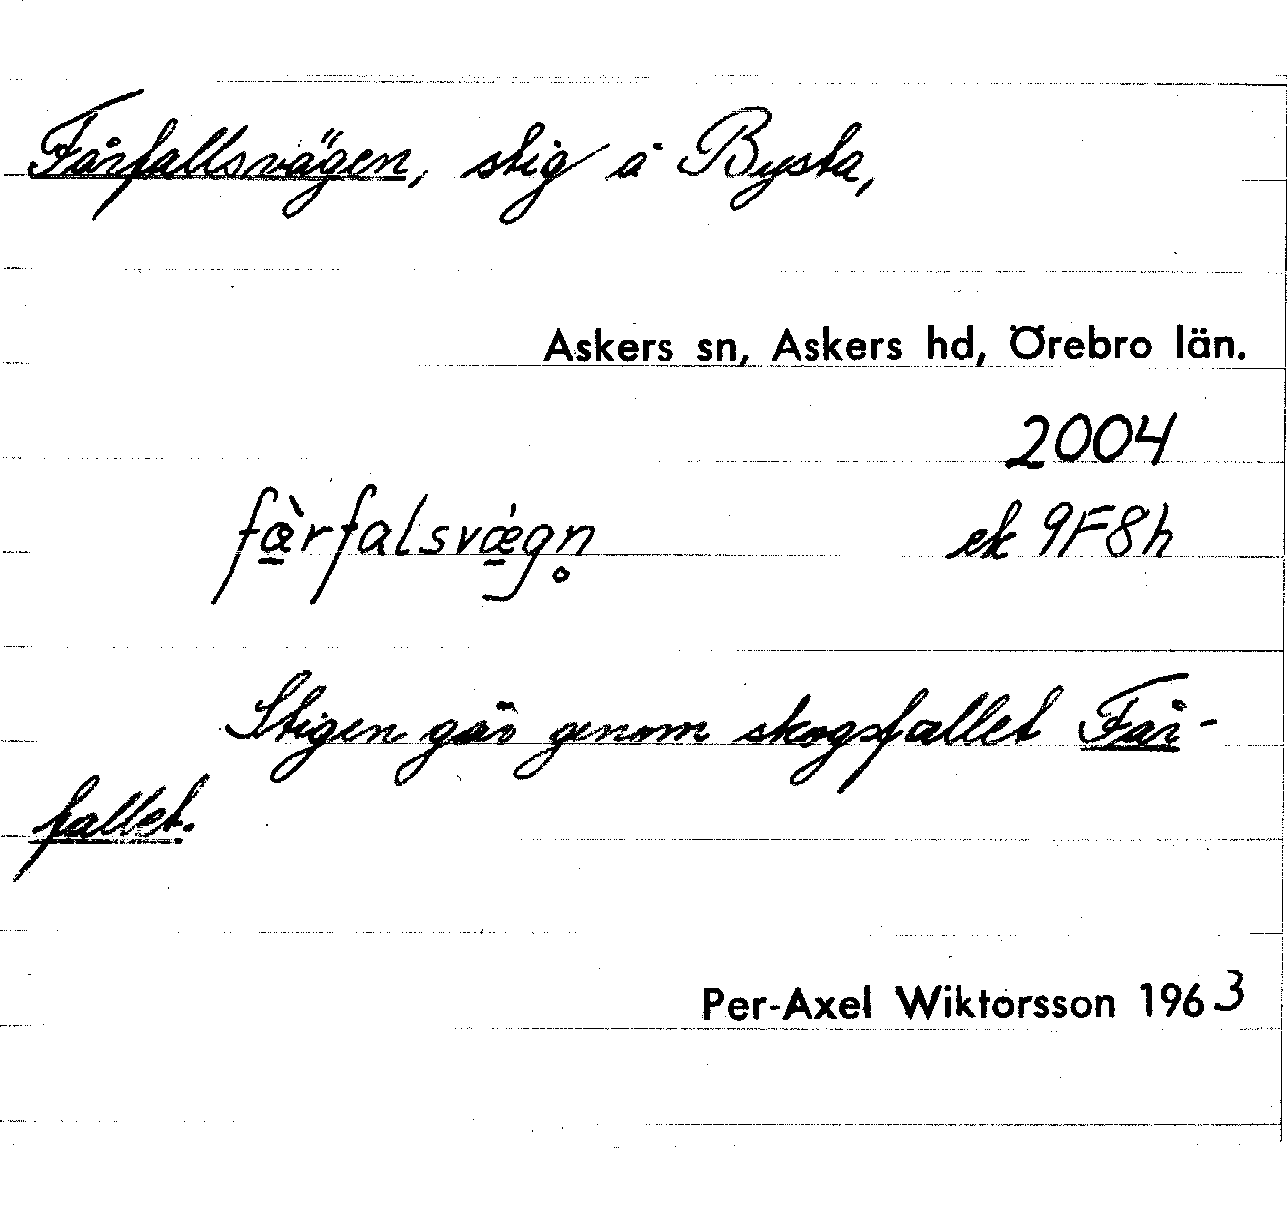 Fårfallsvägen, stig å Bysta,
Askers sn, Askers hd, Örebro län.
2004
fæ̀rfalsvǽgn̥ ek 9F8h
Stigen går genom skogsfallet Får-
fallet.
Per-Axel Wiktorsson 1963